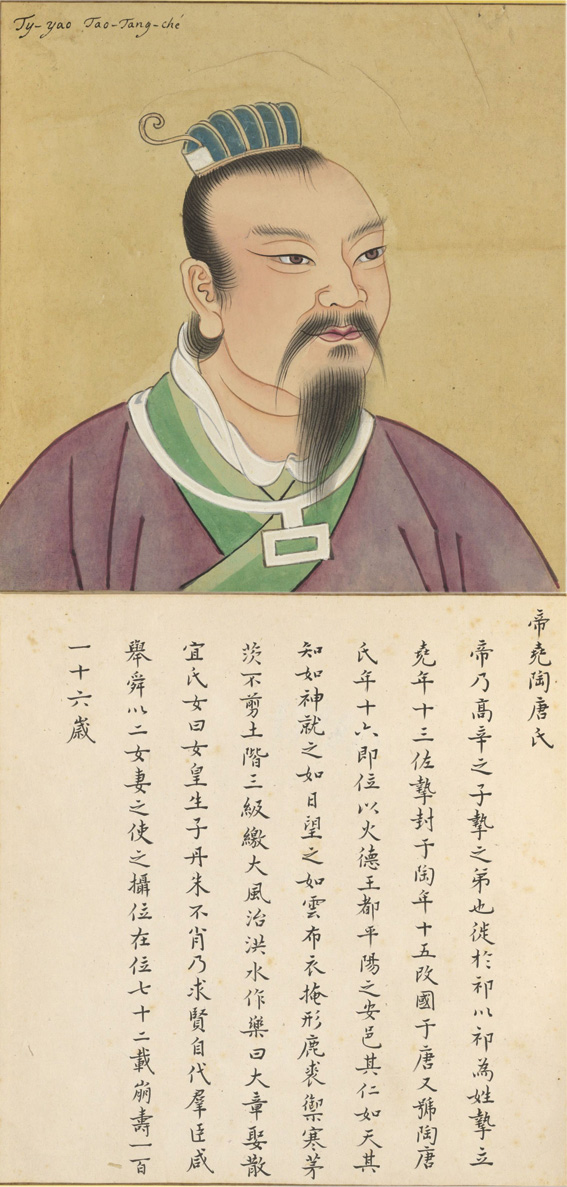 Ty-yao Tao-Tang-ché
帝堯陶唐氏
帝乃高辛之子摯之弟也徙於祁以祁為姓摯立
堯年十三佐摯封于陶年十五改國于唐又號陶唐
氏年十六即位以火德王都平陽之安邑其仁如天其
知如神就之如日望之如雲布衣掩形鹿裘禦寒茅
茨不剪土階三級繳大風治洪水作樂曰大章娶散
宜氏女曰女皇生子丹朱不肖乃求賢自代羣臣咸
舉舜以二女妻之使之攝位在位七十二載崩壽一百
一十六歲